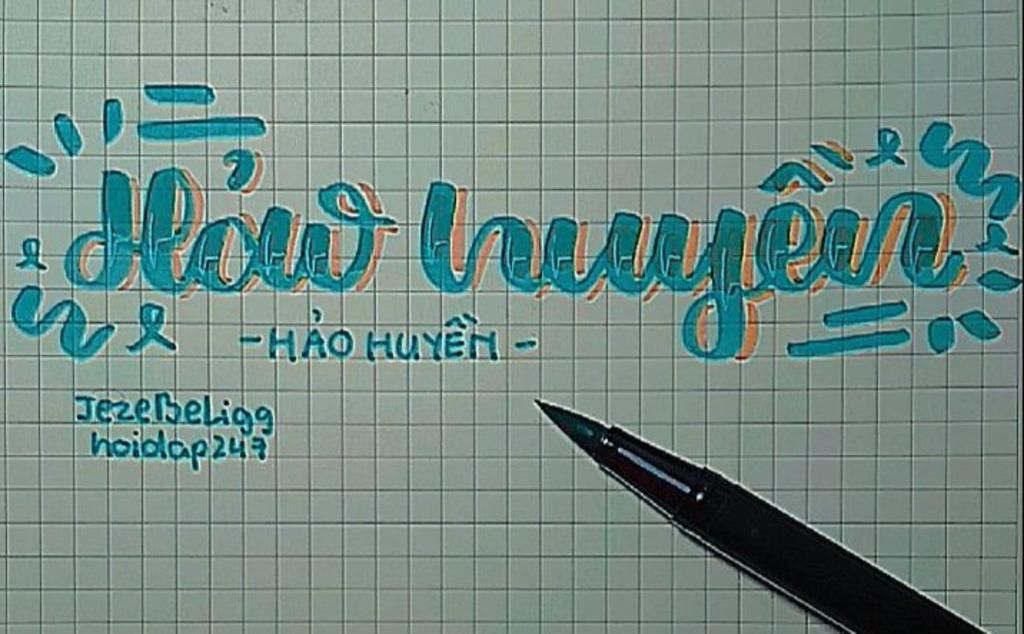 Hảo huyền
-HẢO HUYỀN-
JezeBeLigg
hoidap247